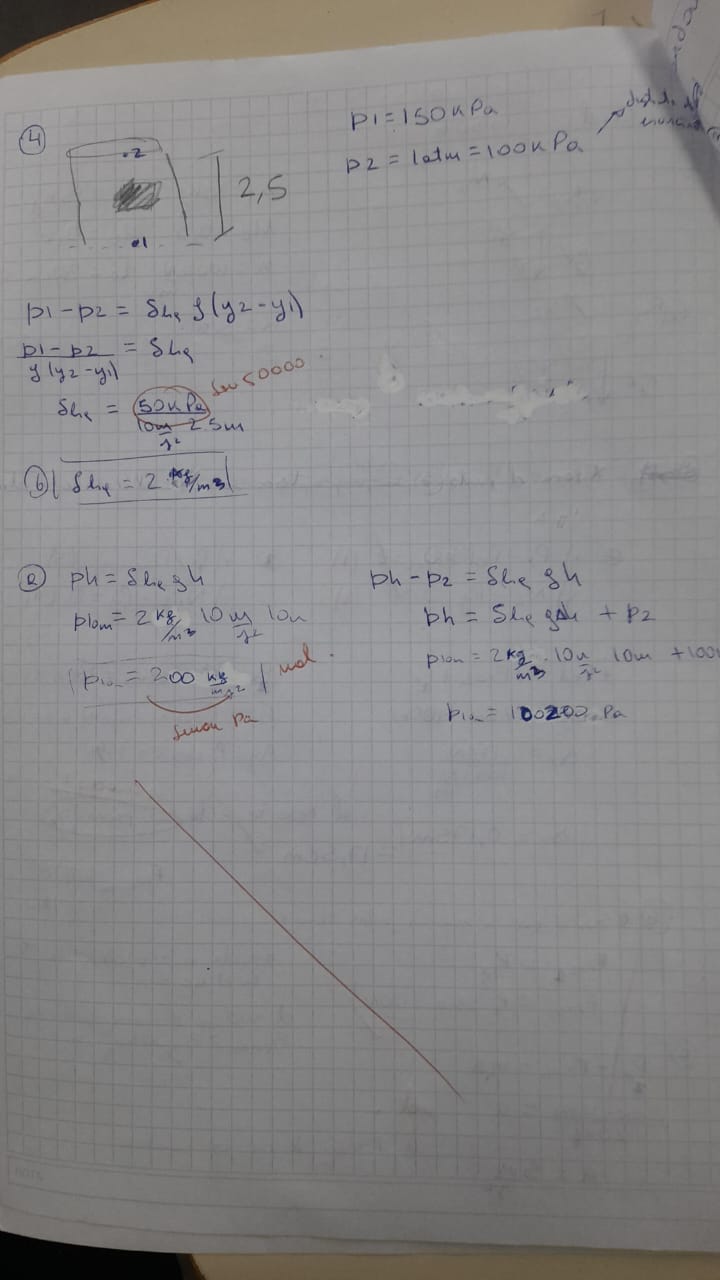 4
p1 = 150 kPa
p2 = 1 atm = 100 kPa
.2
2,5
.1
p1 - p2 = δliq g (y2 - y1)
p1 - p2 / g (y2 - y1) = δliq
δliq = 50 kPa / 10 m/s² 2.5m
50000
b) δliq = 2 kg/m3
a) ph = δliq g h
p10m = 2 kg/m3 10 m/s² 10m
p10m = 200 kg/ms²
mal.
Pa
ph - p2 = δliq g h
ph = δliq g h + p2
p10m = 2 kg/m3 . 10 m/s² 10m + 100
p10m = 100200 Pa
NOTE